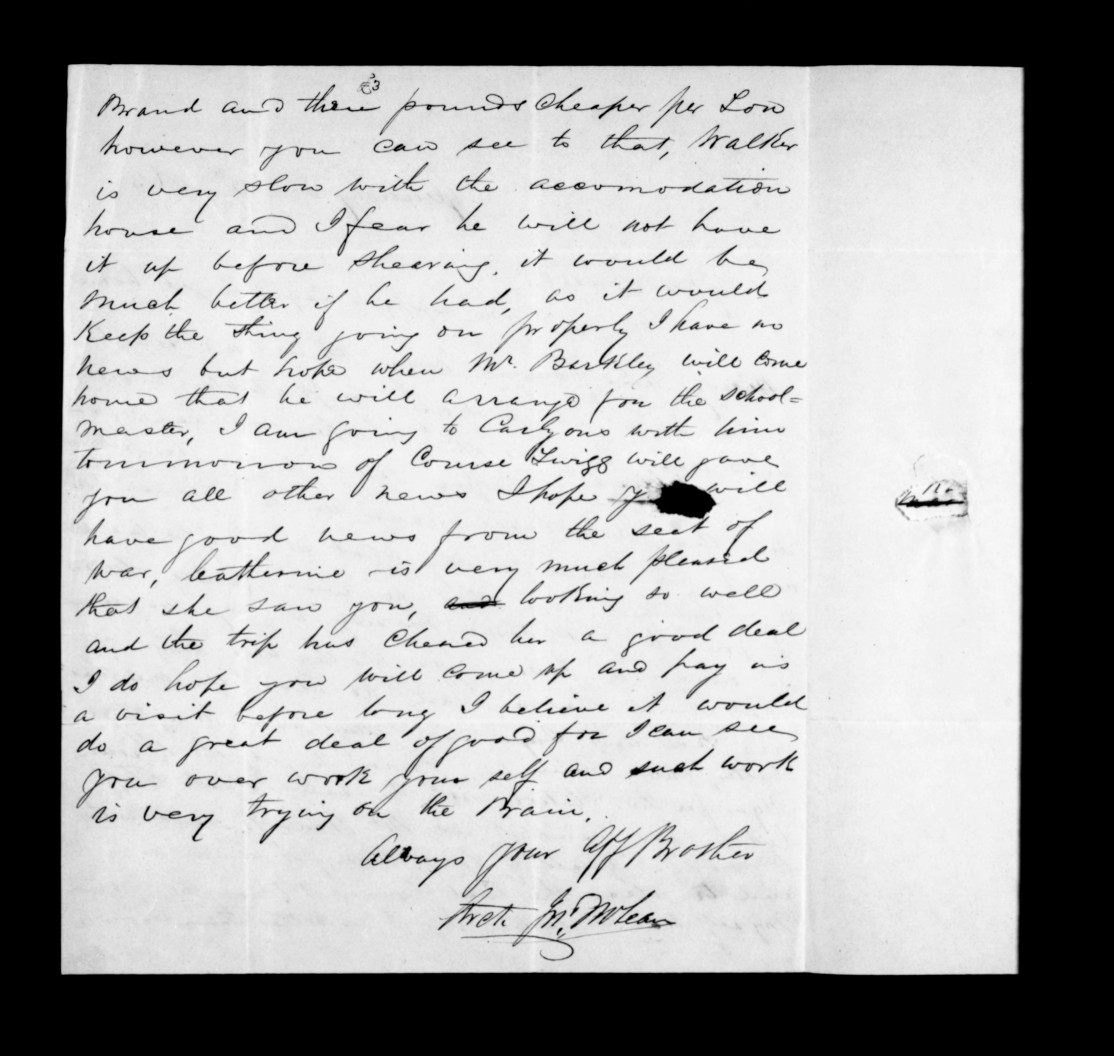 £3
Brand and three pounds cheaper per Ton
however you can see to that, Walker
is very slow with the accomodation
house and I fear he will not have
it up before shearing, it would be
much better if he had, as it would
Keep the thing going on properly I have no
news but hope when Mr. Barkley will come
home that he will arrange for the school=
master, I am going to Carlyons with him
tommorrow of Course Twigg will gave
you all other news I hope y will
have good news from the seat of
war, Catherine is very much pleased
that she saw you, and looking so well
and the trip has Cheered her a good deal
I do hope you will come up and pay us
a visit before long I believe it would
do a great deal of good for I can see
you over work your self and such work
is very trying on the Brain.
Always your Aff Brother
Arch Jno. McLean